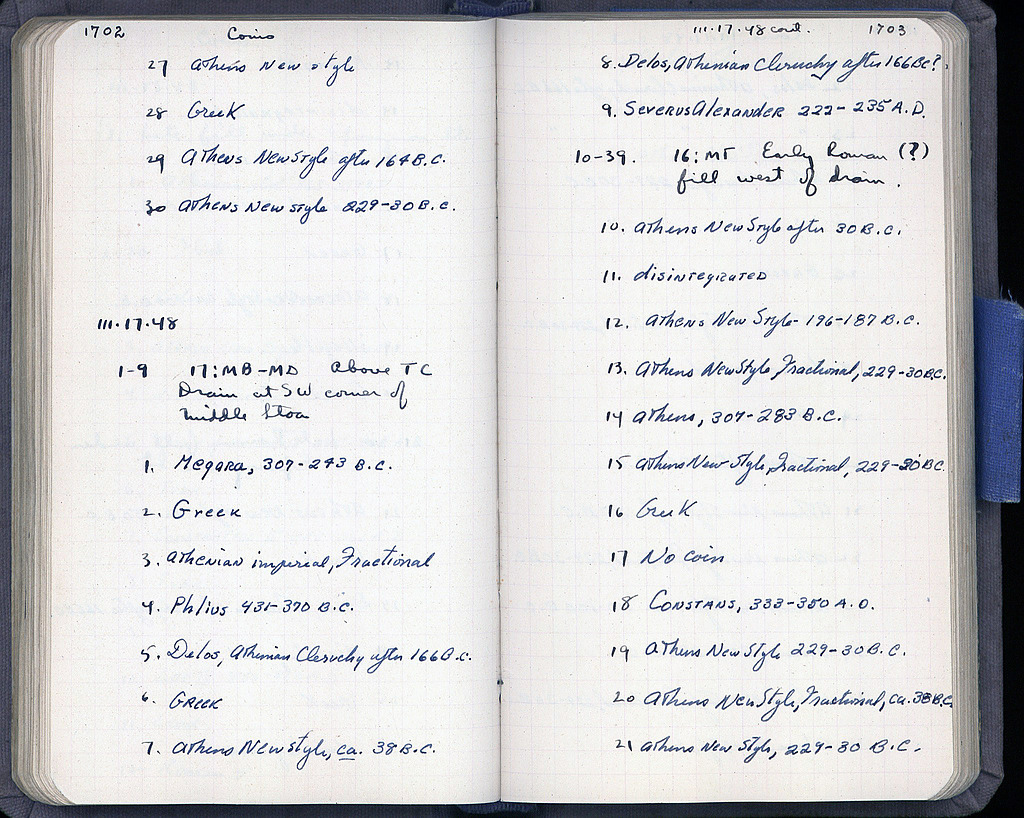 1702
Coins
27 Athens New Style
28 Greek
29 Athens New Style after 164 B.C.
30 Athens New Style 229-30 B.C.
III.17.48
1-9 17:MB-MD Above TC
Drain at SW corner of
Middle Stoa
1. Megara, 307-243 B.C.
2. Greek
3. Athenian imperial, Fractional
4. Phlius 431-370 B.C.
5. Delos, Athenian Cleruchy after 166 B.C.
6. Greek
7. Athens New Style, ca. 38 B.C.
III.17.48 cont.
1703
8. Delos, Athenian Cleruchy after 166 BC?
9. Severus Alexander 222-235 A.D.
10-39. 16:MT Early Roman (?)
fill west of drain.
10. Athens New Style after 30 B.C.
11. disintegrated
12. Athens New Style- 196-187 B.C.
13. Athens New Style, Fractional, 229-30 B.C.
14 Athens, 307-283 B.C.
15 Athens New Style, Fractional, 229-30 BC
16 Greek
17 No coin
18 Constans, 333-350 A.D.
19 Athens New Style 229-30 B.C.
20 Athens New Style, Fractional, ca. 38 B.C.
21 Athens New Style, 229-30 B.C.